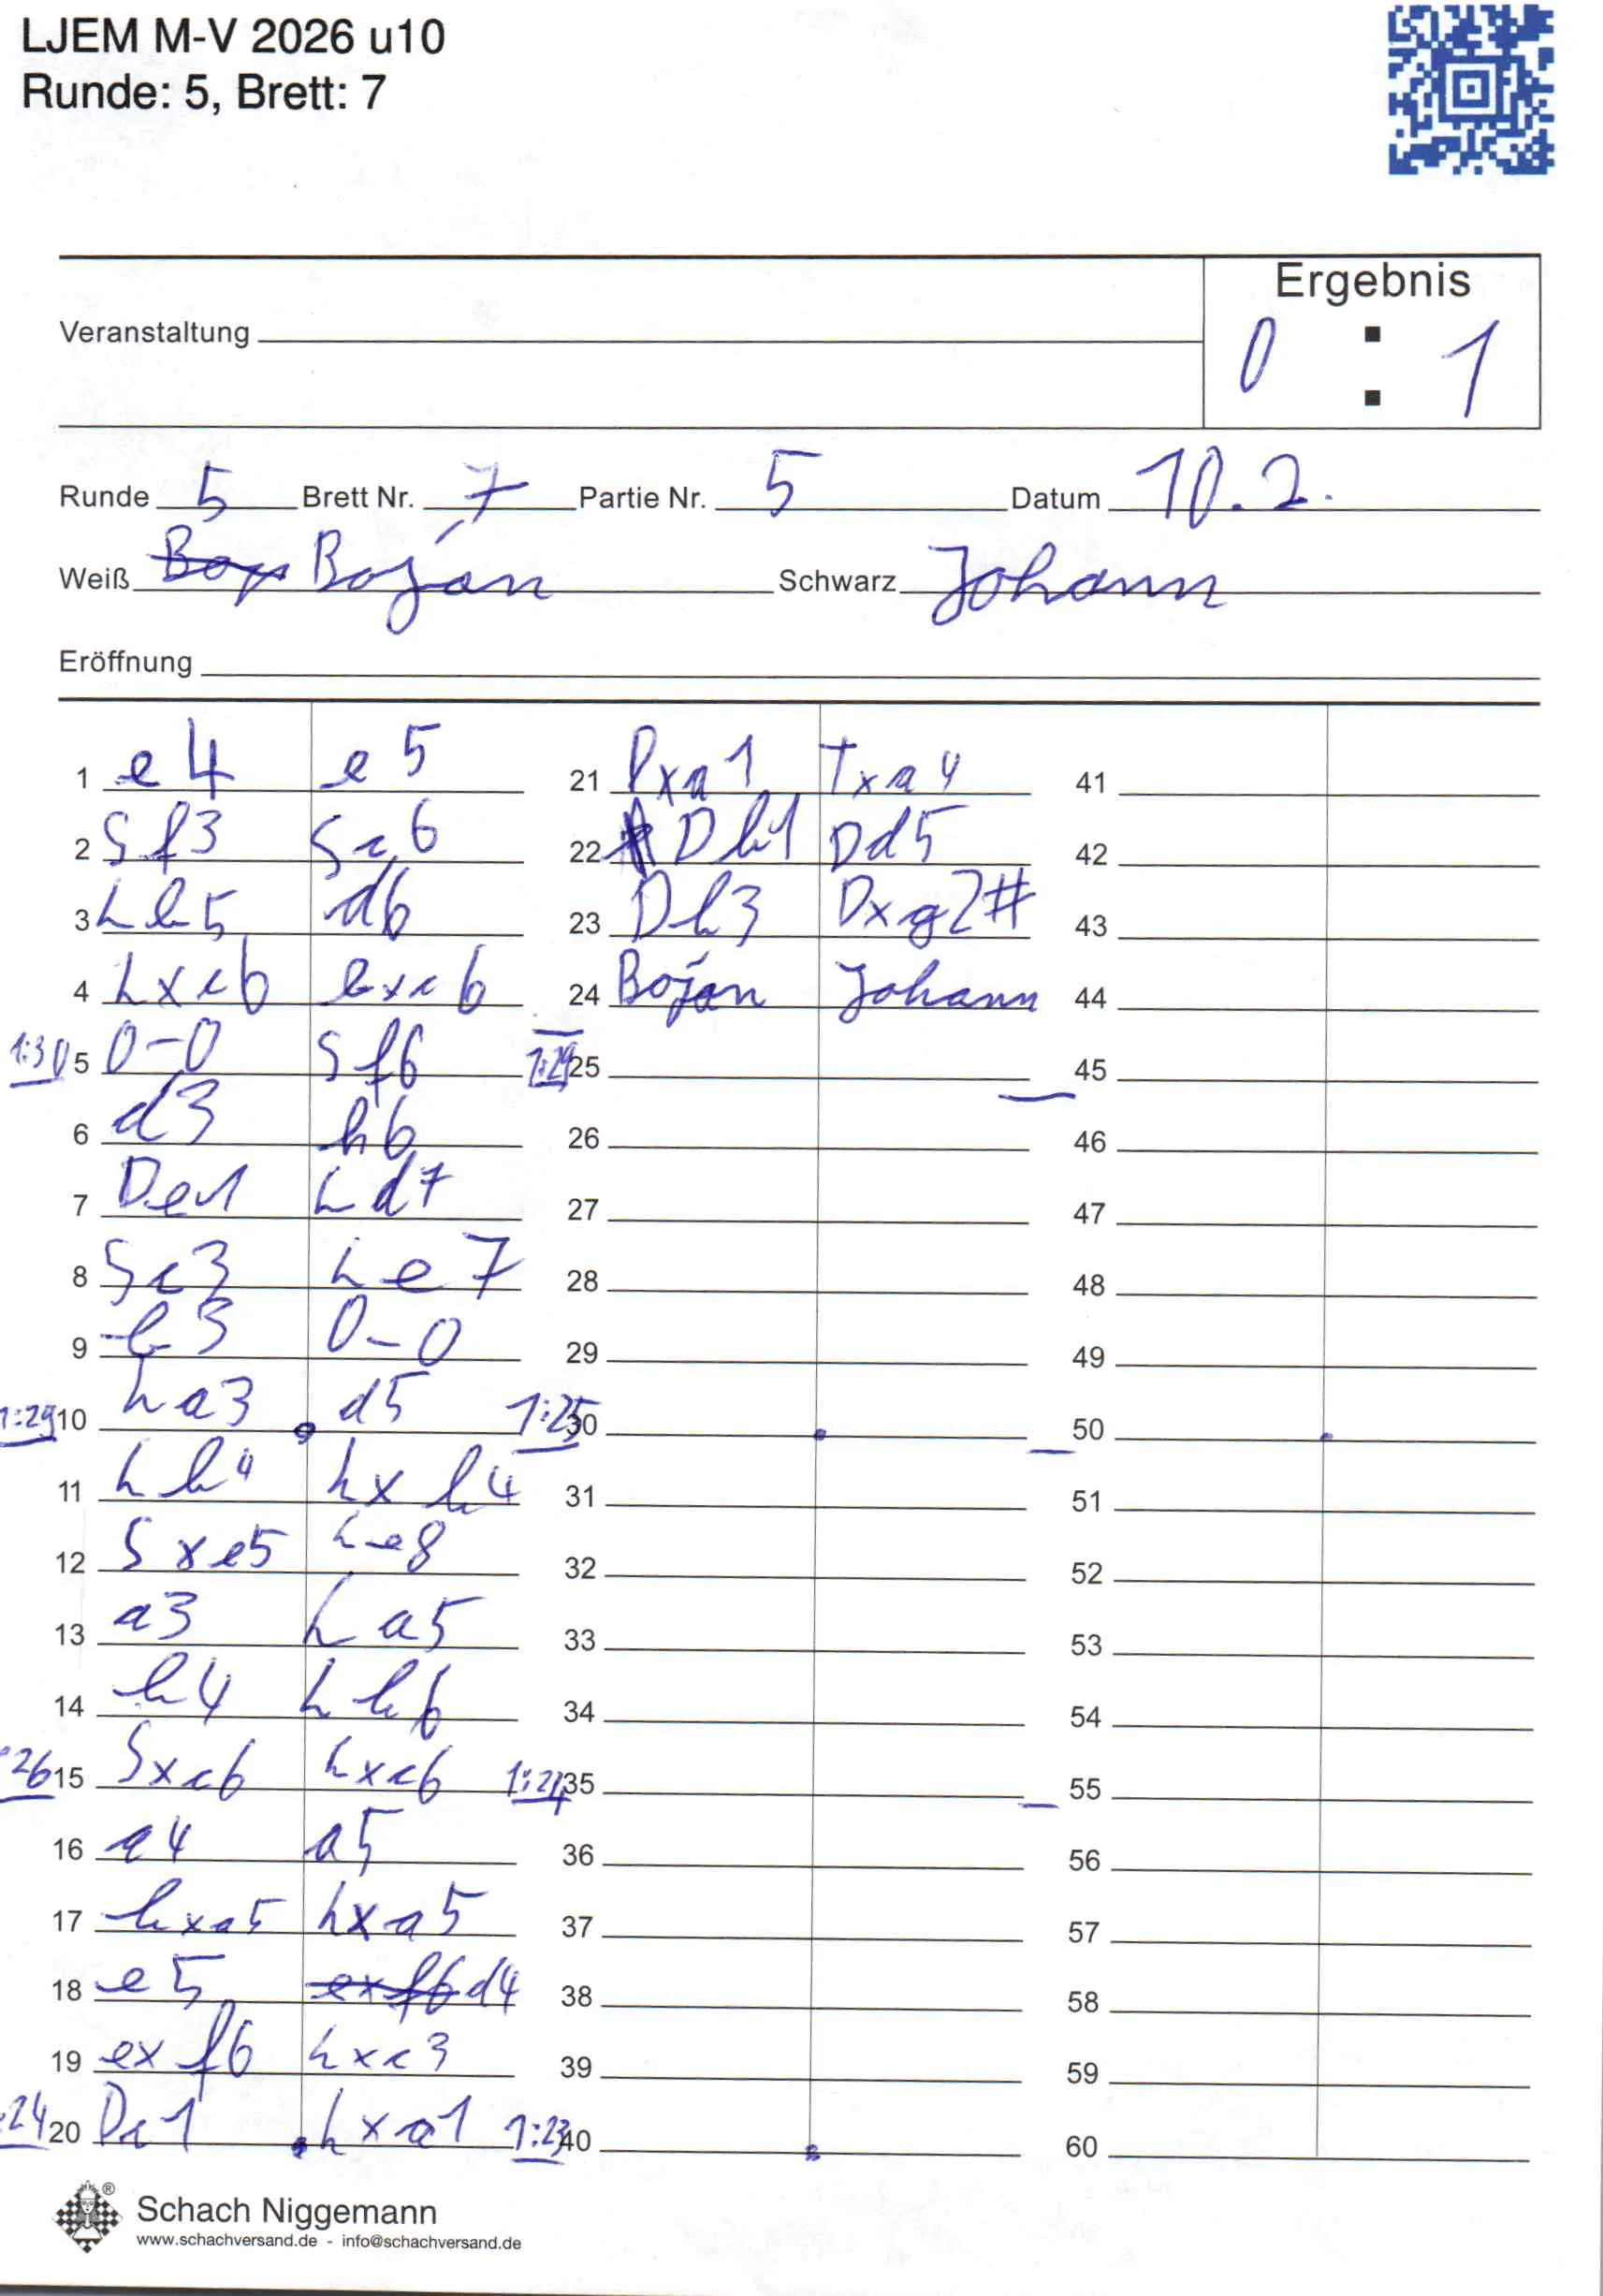 LJEM M-V 2026 u10
Runde: 5, Brett: 7
Ergebnis
Veranstaltung
0 : 1
Runde 5 Brett Nr. 7 Partie Nr. 5 Datum 10.2.
Weiß Boján Schwarz Johann
Eröffnung
1 e4 e5 21 Dxa1 Txa4 41
2 Sf3 Sc6 22 Db1 Dd5 42
3 Lb5 d6 23 Db3 Dxg2# 43
4 Lxc6 bxc6 24 Boján Johann 44
1:30 5 0-0 Sf6 1:29 25 45
6 d3 h6 26 46
7 De1 Ld7 27 47
8 Sc3 Le7 28 48
9 b3 0-0 29 49
1:29 10 La3 d5 1:25 30 50
11 Lb4 Lxb4 31 51
12 Sxe5 Le8 32 52
13 a3 La5 33 53
14 b4 Lb6 34 54
:26 15 Sxc6 Lxc6 1:24 35 55
16 a4 a5 36 56
17 bxa5 Lxa5 37 57
18 e5 exf6 d4 38 58
19 exf6 Lxc3 39 59
:24 20 Dc1 Lxa1 1:23 40 60
Schach Niggemann
www.schachversand.de - info@schachversand.de